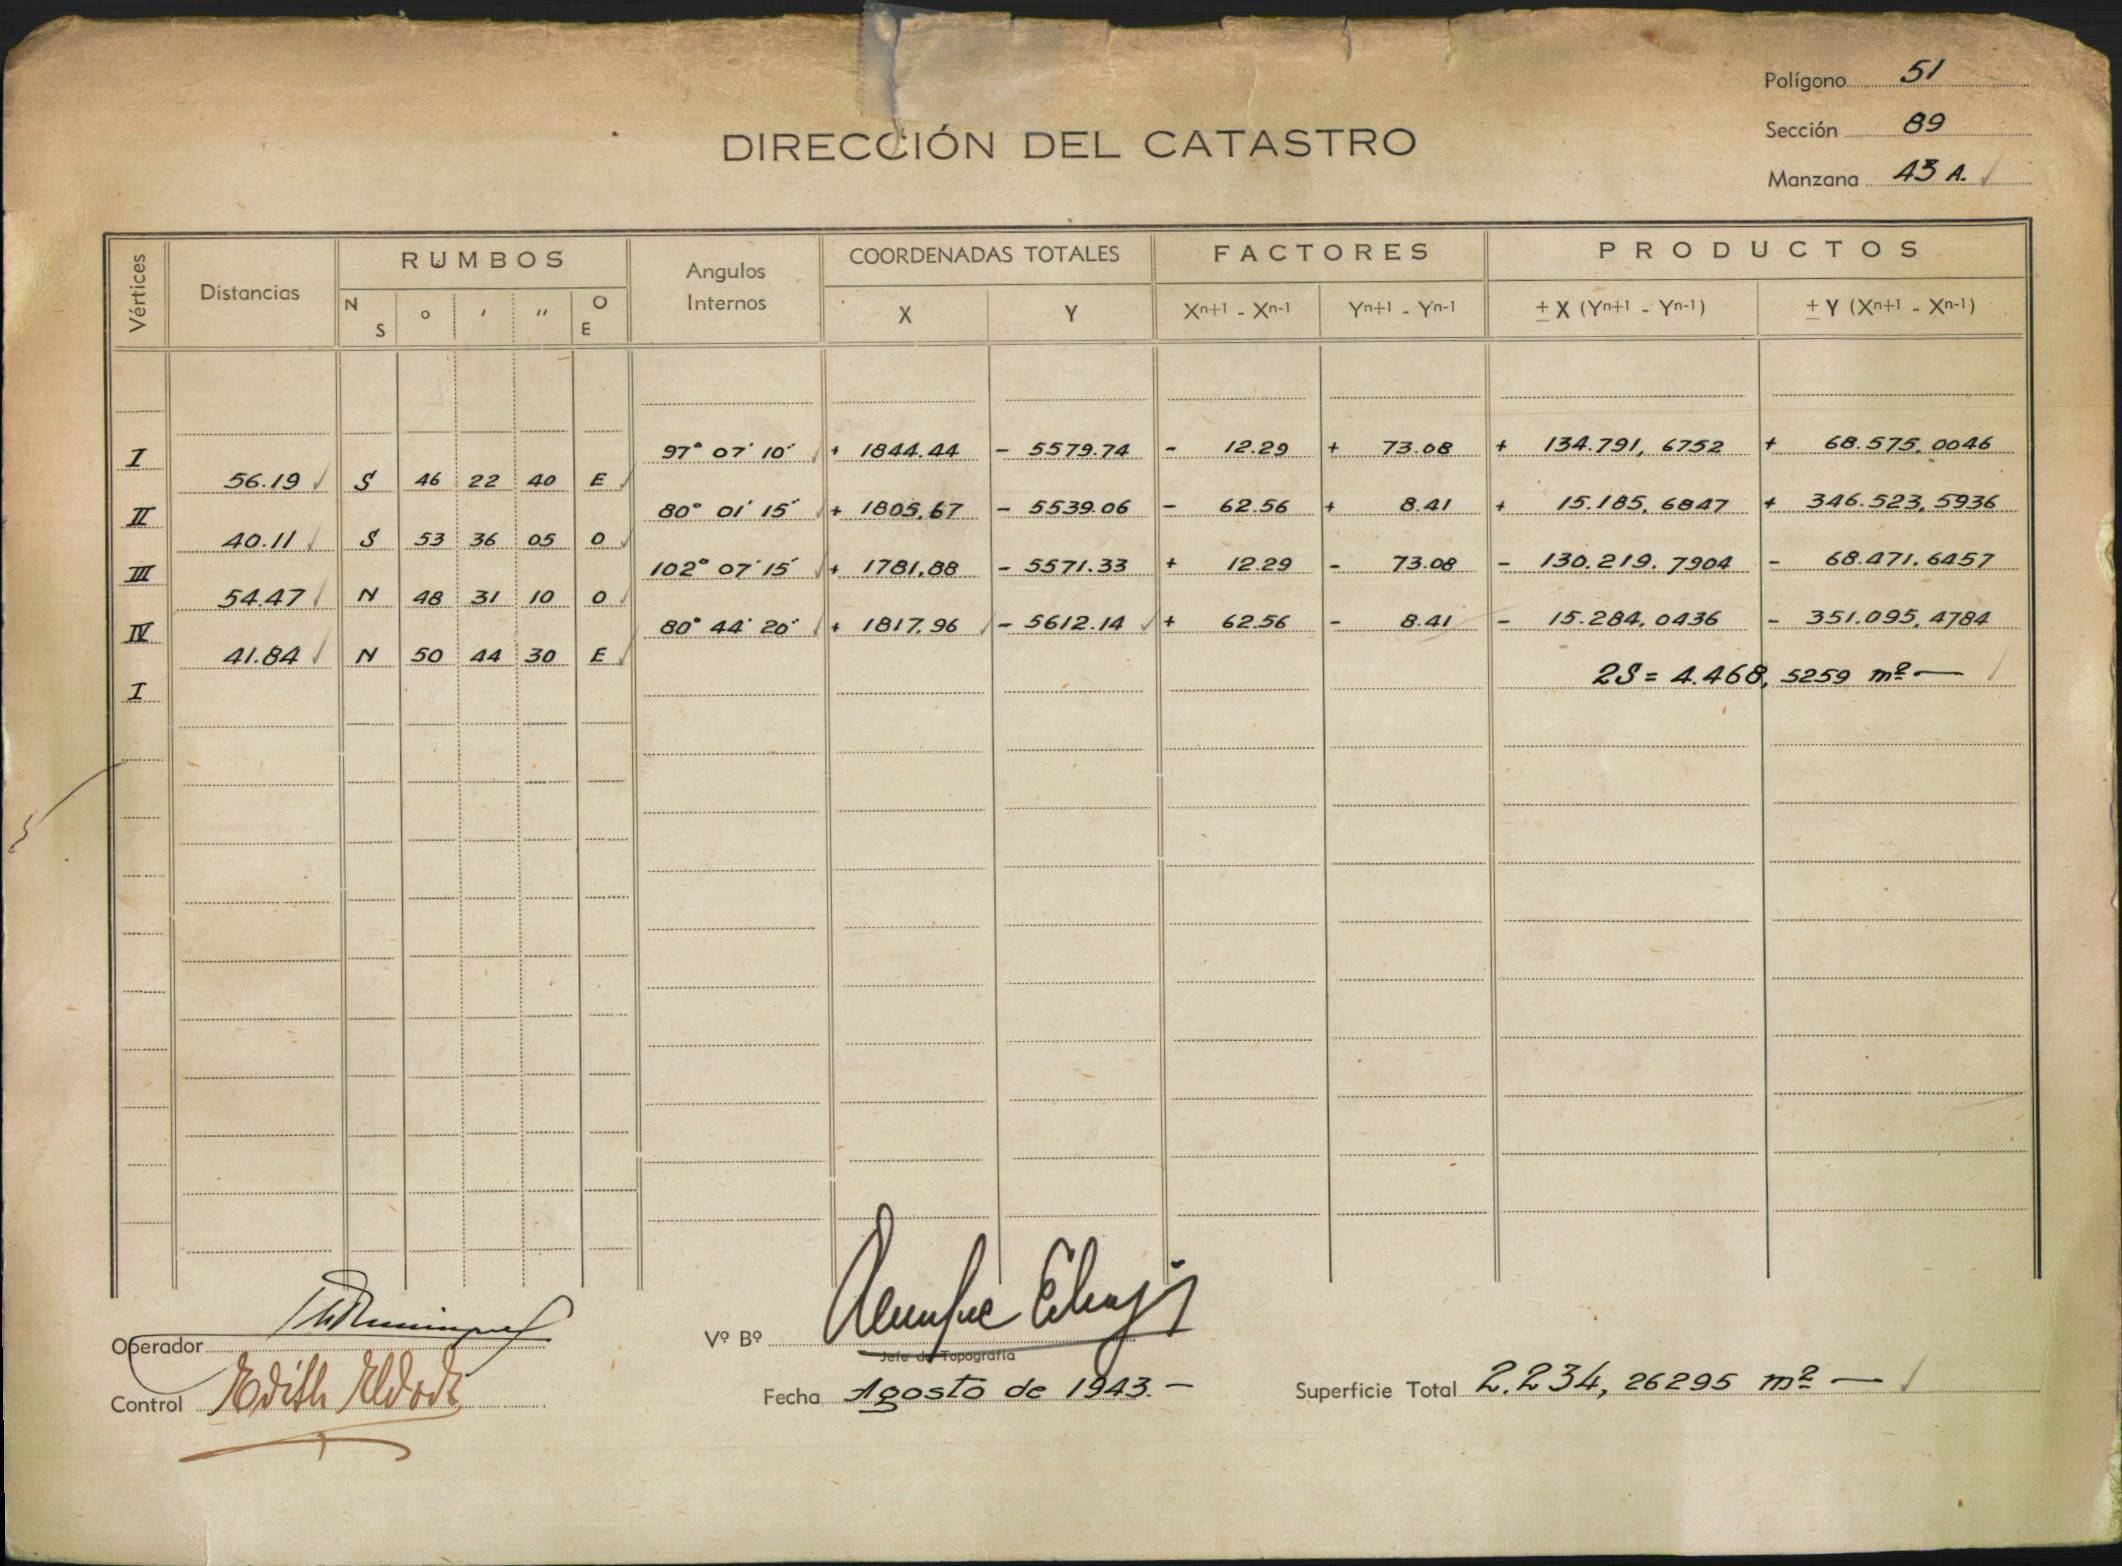 Polígono 51
DIRECCIÓN DEL CATASTRO
Sección 89
Manzana 43 A. ✓
Vértices Distancias RUMBOS Angulos Internos COORDENADAS TOTALES FACTORES PRODUCTOS
N S ° ' " O E X Y Xn+1 - Xn-1 Yn+1 - Yn-1 ± X (Yn+1 - Yn-1) ± Y (Xn+1 - Xn-1)
I 97° 07' 10" ✓ + 1844.44 - 5579.74 - 12.29 + 73.08 + 134.791, 6752 + 68.575, 0046
56.19 ✓ S 46 22 40 E ✓
II 80° 01' 15" ✓ + 1805,67 - 5539.06 - 62.56 + 8.41 + 15.185, 6847 + 346.523, 5936
40.11 ✓ S 53 36 05 O ✓
III 102° 07' 15" ✓ + 1781,88 - 5571.33 + 12.29 - 73.08 - 130.219, 7904 - 68.471, 6457
54.47 ✓ N 48 31 10 O ✓
IV 80° 44' 20" ✓ + 1817,96 ✓ - 5612.14 ✓ + 62.56 - 8.41 - 15.284, 0436 - 351.095, 4784
41.84 ✓ N 50 44 30 E ✓
I 2S = 4.468, 5259 m² — ✓
Operador
Vº Bº
Jefe de Topografía
Control Edith
Fecha Agosto de 1943. —
Superficie Total 2.234, 26295 m² — ✓